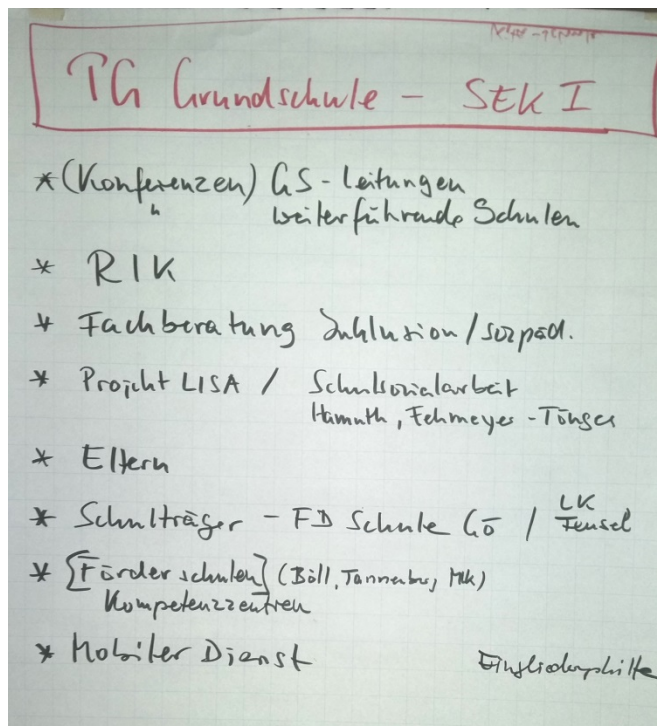 TG Grundschule - SEK I
* (Konferenzen) GS-Leitungen
weiterführende Schulen
* RIK
* Fachberatung Inklusion / sozpäd.
* Projekt LISA / Schulsozialarbeit
Fehmeyer-Tönges
* Eltern
* Schulträger - FD Schule Gö / LK
* [Förderschulen] (Böll, Tannenberg,
Kompetenzzentren
* Mobiler Dienst
Eingliederungshilfe